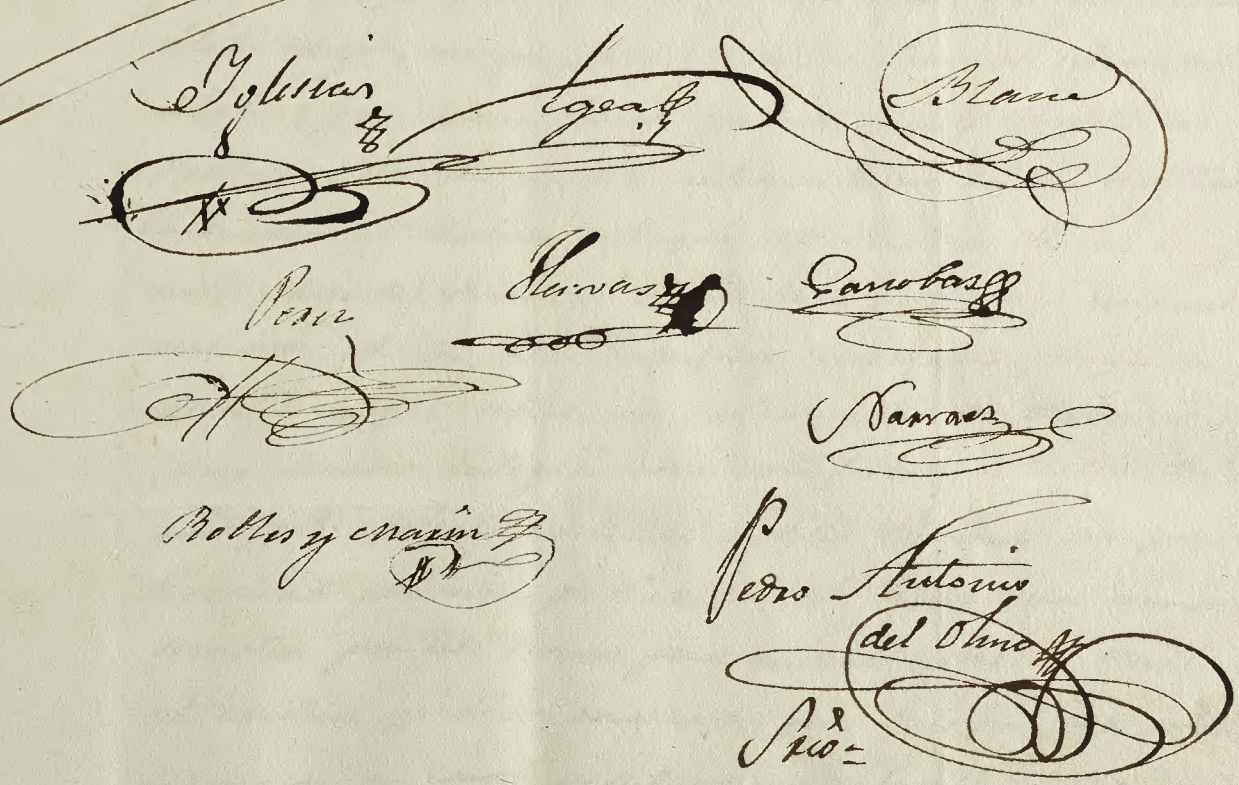 Yglesias
Egea
Blanes
Perez
Hervas
Garrobas
Narvaez
Robles y Marin
Pedro Antonio
del Olmo
Srio